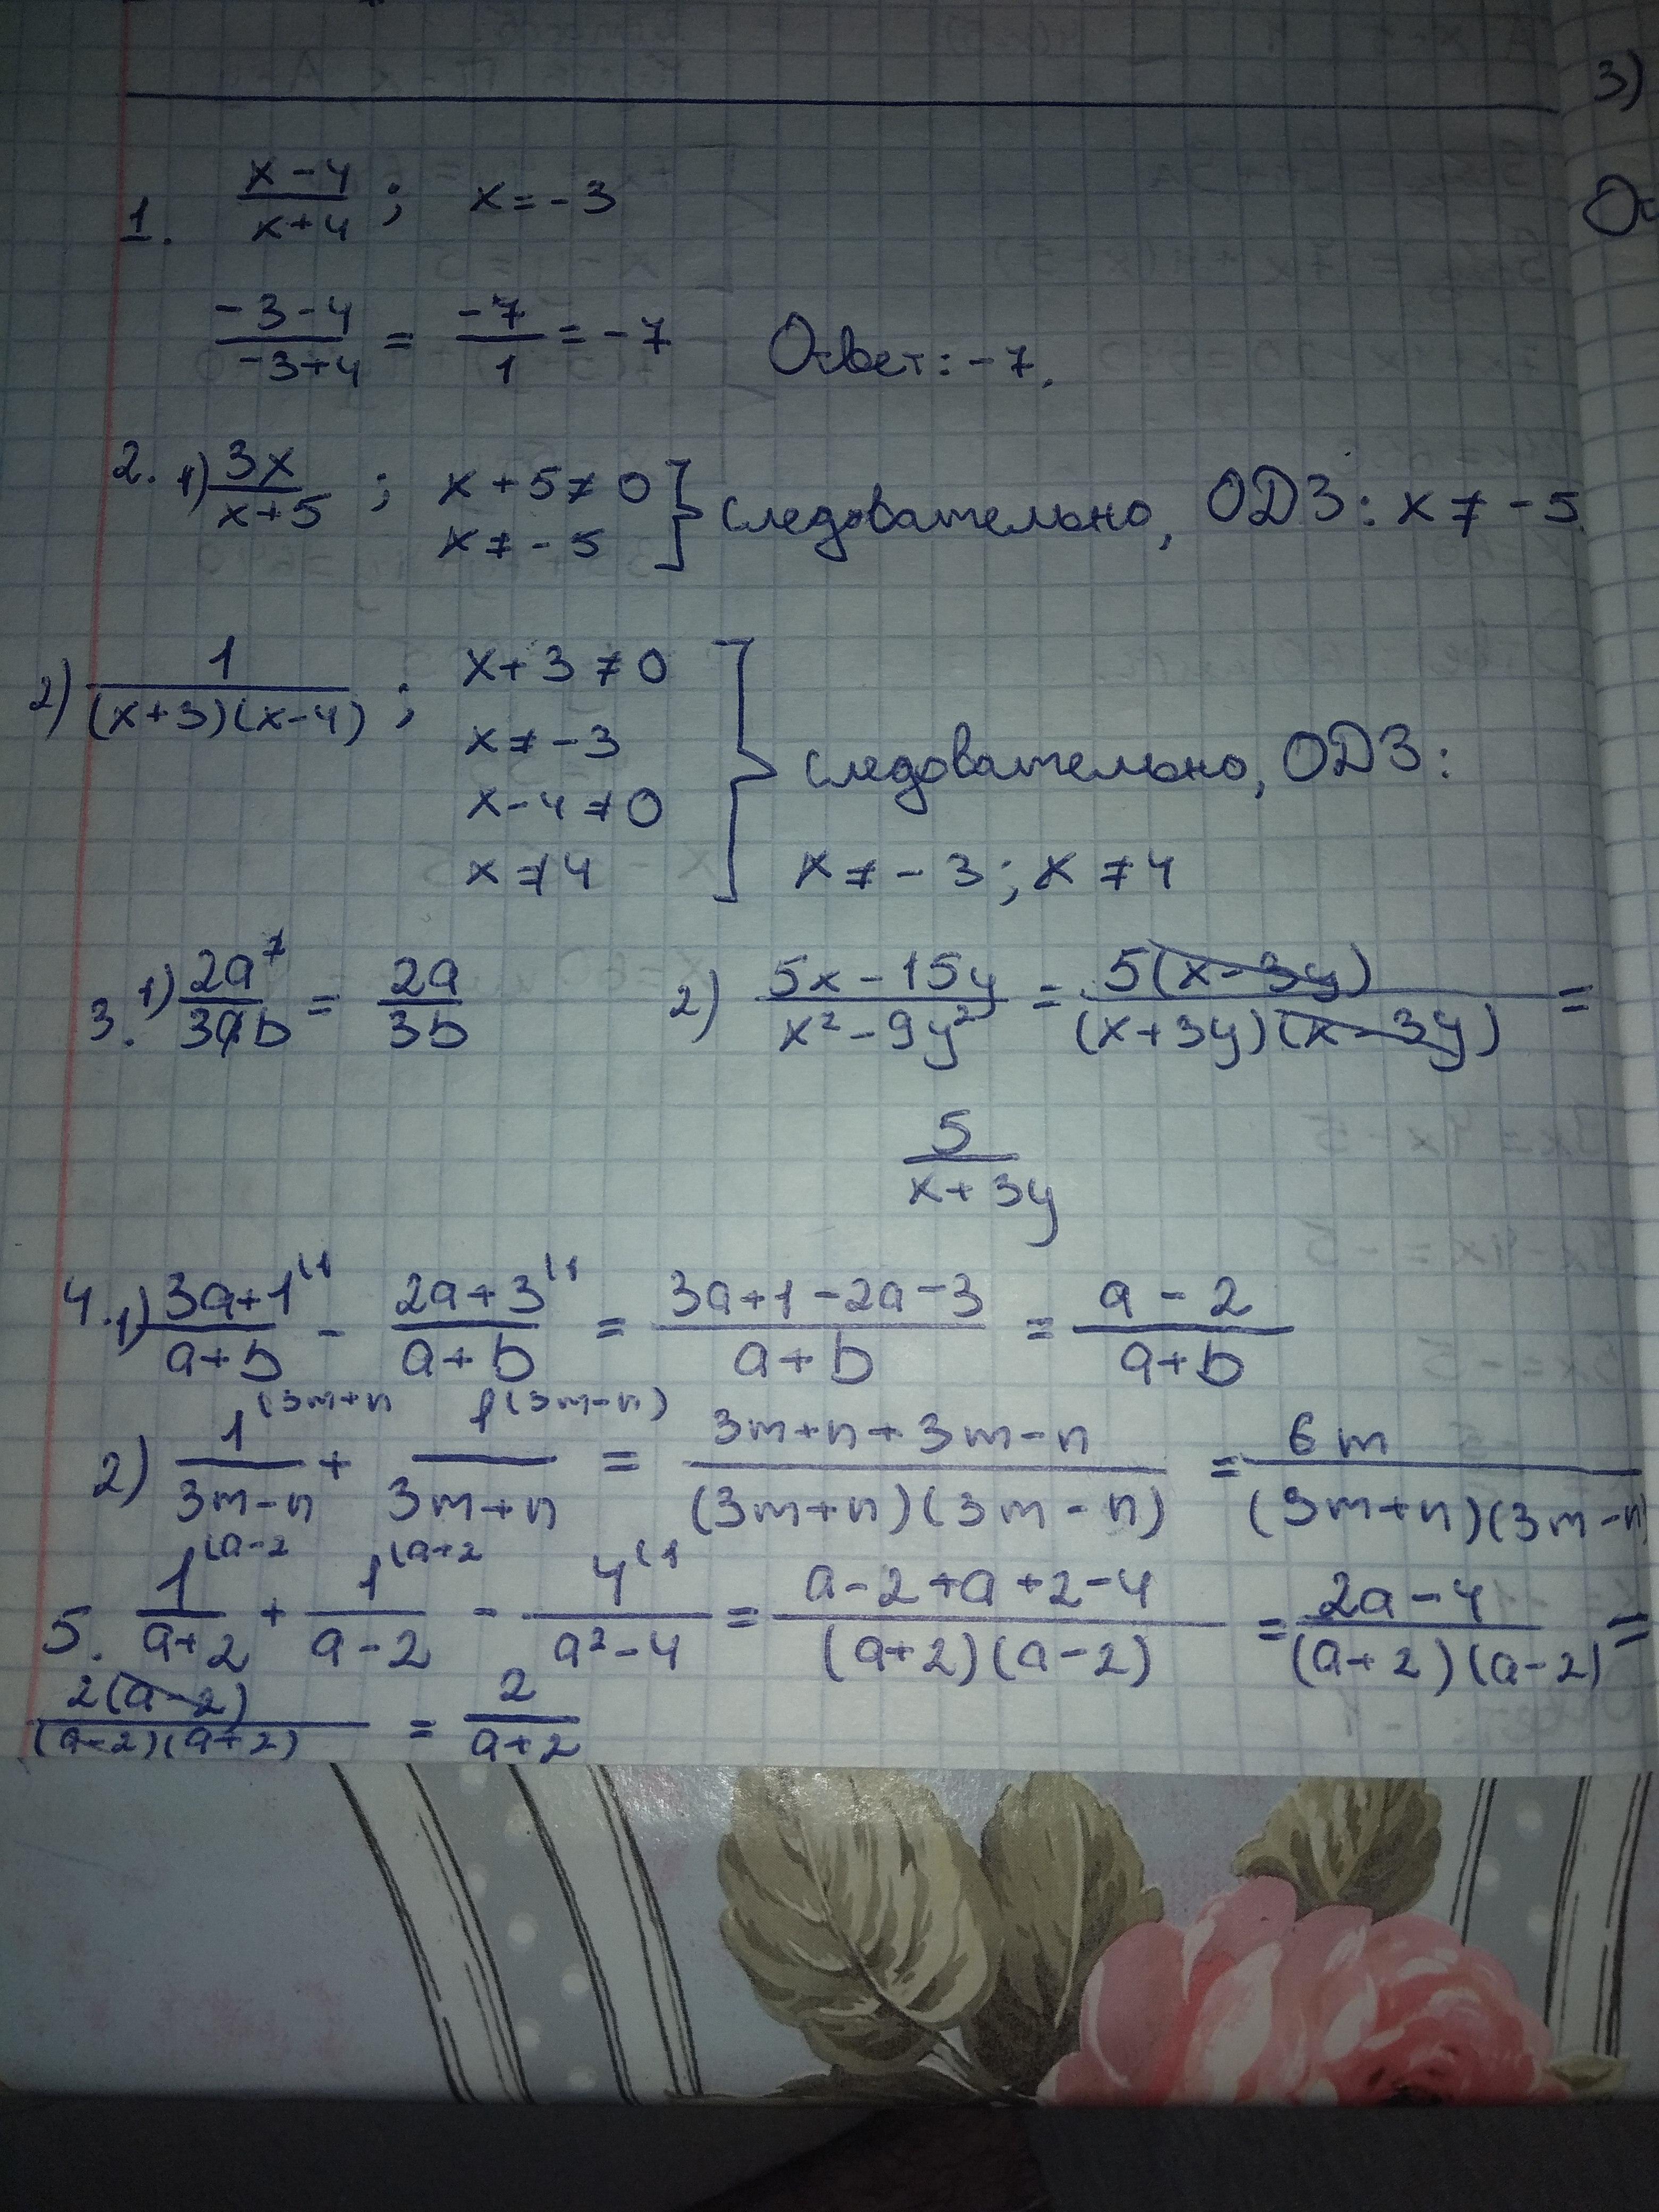 3)
1. (x-4)/(x+4) ; x = -3
(-3-4)/(-3+4) = -7/1 = -7 Ответ: -7.
2. 1) 3x/(x+5) ; x + 5 ≠ 0 } следовательно, ОДЗ: x ≠ -5.
x ≠ -5
2) 1/((x+3)(x-4)) ; x + 3 ≠ 0
x ≠ -3
следовательно, ОДЗ:
x - 4 ≠ 0
x ≠ 4 x ≠ -3; x ≠ 4
3. 1) 2a²/3ab = 2a/3b 2) (5x - 15y)/(x² - 9y²) = 5(x-3y)/((x+3y)(x-3y)) =
5/(x+3y)
4. 1) (3a+1)/(a+b) ⁽¹ - (2a+3)/(a+b) ⁽¹ = (3a+1-2a-3)/(a+b) = (a-2)/(a+b)
2) 1/(3m-n) ⁽3m+n + 1/(3m+n) ⁽3m-n⁾ = (3m+n+3m-n)/((3m+n)(3m-n)) = 6m/((3m+n)(3m-n)
5. 1/(a+2) ⁽a-2 + 1/(a-2) ⁽a+2 - 4/(a²-4) ⁽¹ = (a-2+a+2-4)/((a+2)(a-2)) = (2a-4)/((a+2)(a-2)) =
2(a-2)/((a-2)(a+2)) = 2/(a+2)